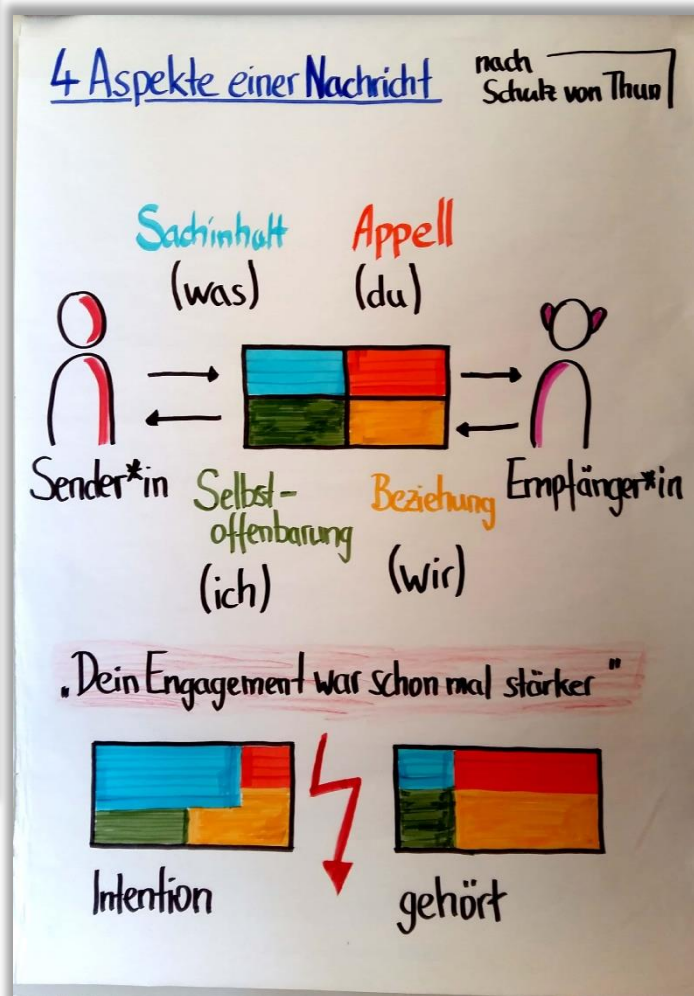 4 Aspekte einer Nachricht
nach
Schulz von Thun
Sachinhalt
(was)
Appell
(du)
Sender*in
Selbst-
offenbarung
(ich)
Beziehung
(wir)
Empfänger*in
„Dein Engagement war schon mal stärker"
Intention
gehört